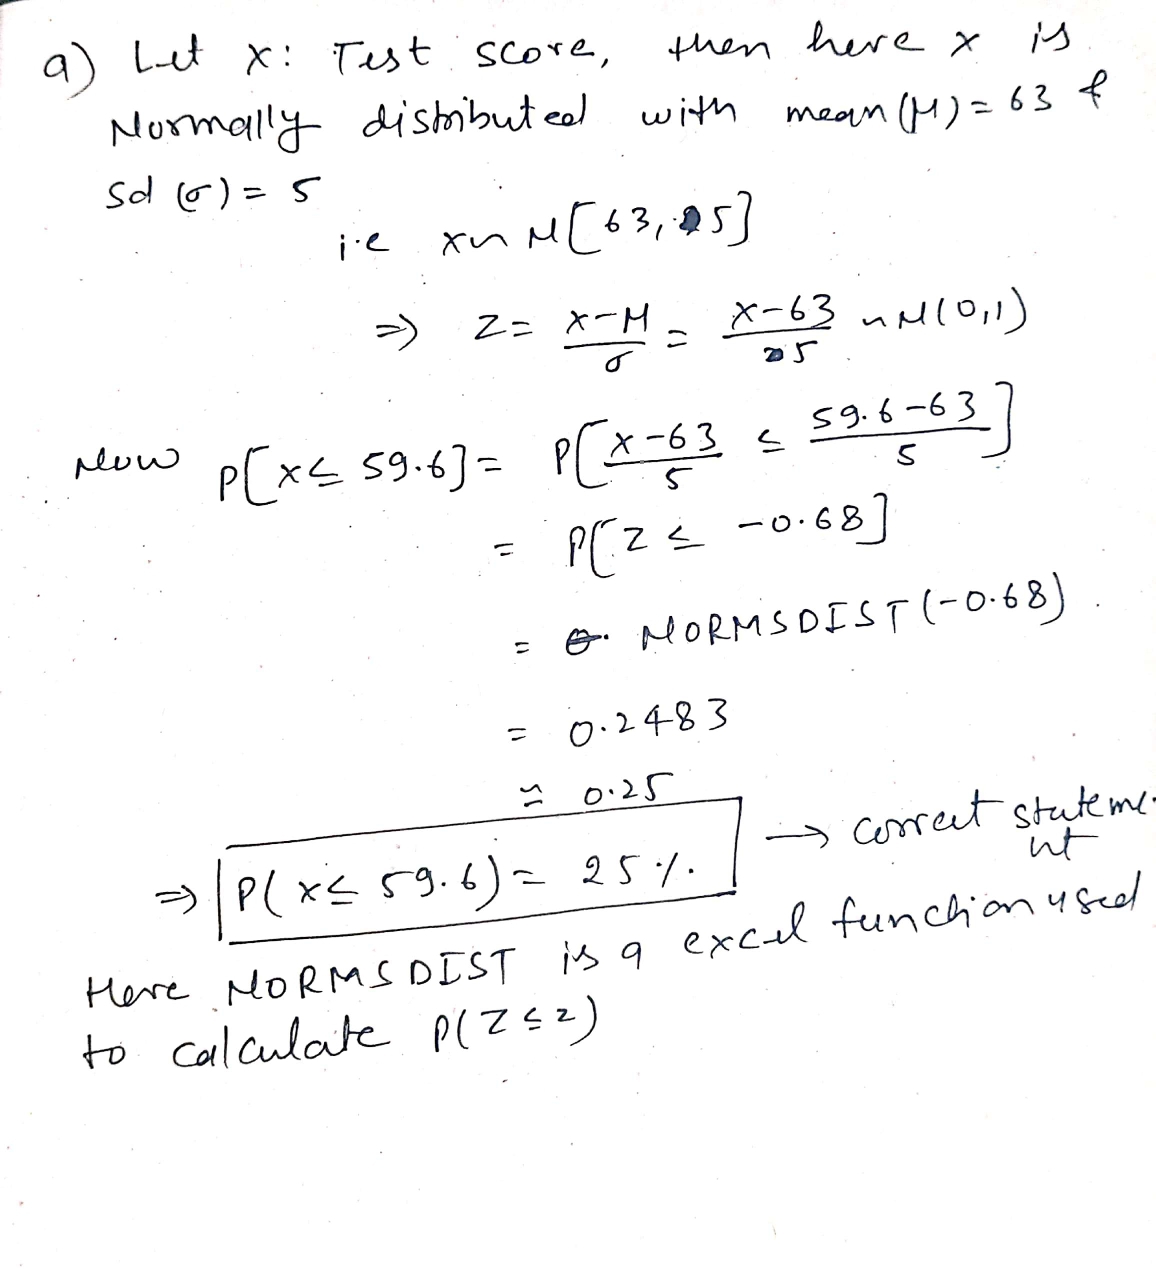 a) Let x: Test score, then here x is
Normally distributed with mean (μ) = 63 &
sd (σ) = 5
i.e x~N[63, 5]
⇒ Z = x-μ/σ = x-63/5 ~N(0,1)
Now P[x≤ 59.6] = P[x-63/5 ≤ 59.6-63/5]
= P[Z ≤ -0.68]
= NORMSDIST(-0.68)
= 0.2483
≃ 0.25
⇒ P(x≤ 59.6) = 25%. → correct stateme-
nt
Here NORMSDIST is a excel function used
to calculate P(Z≤z)